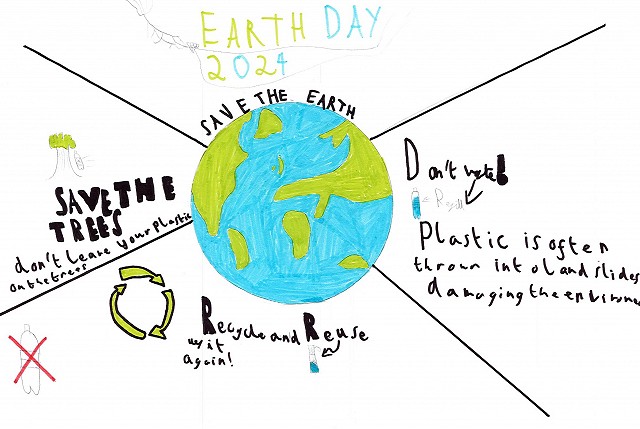 EARTH DAY
2024
SAVE THE EARTH
SAVE THE
TREES
don't leave your plastic
on the trees
Don't waste!
Recycle
Plastic is often
thrown into landslides
damaging the environme
Recycle and Reuse
use it
again!